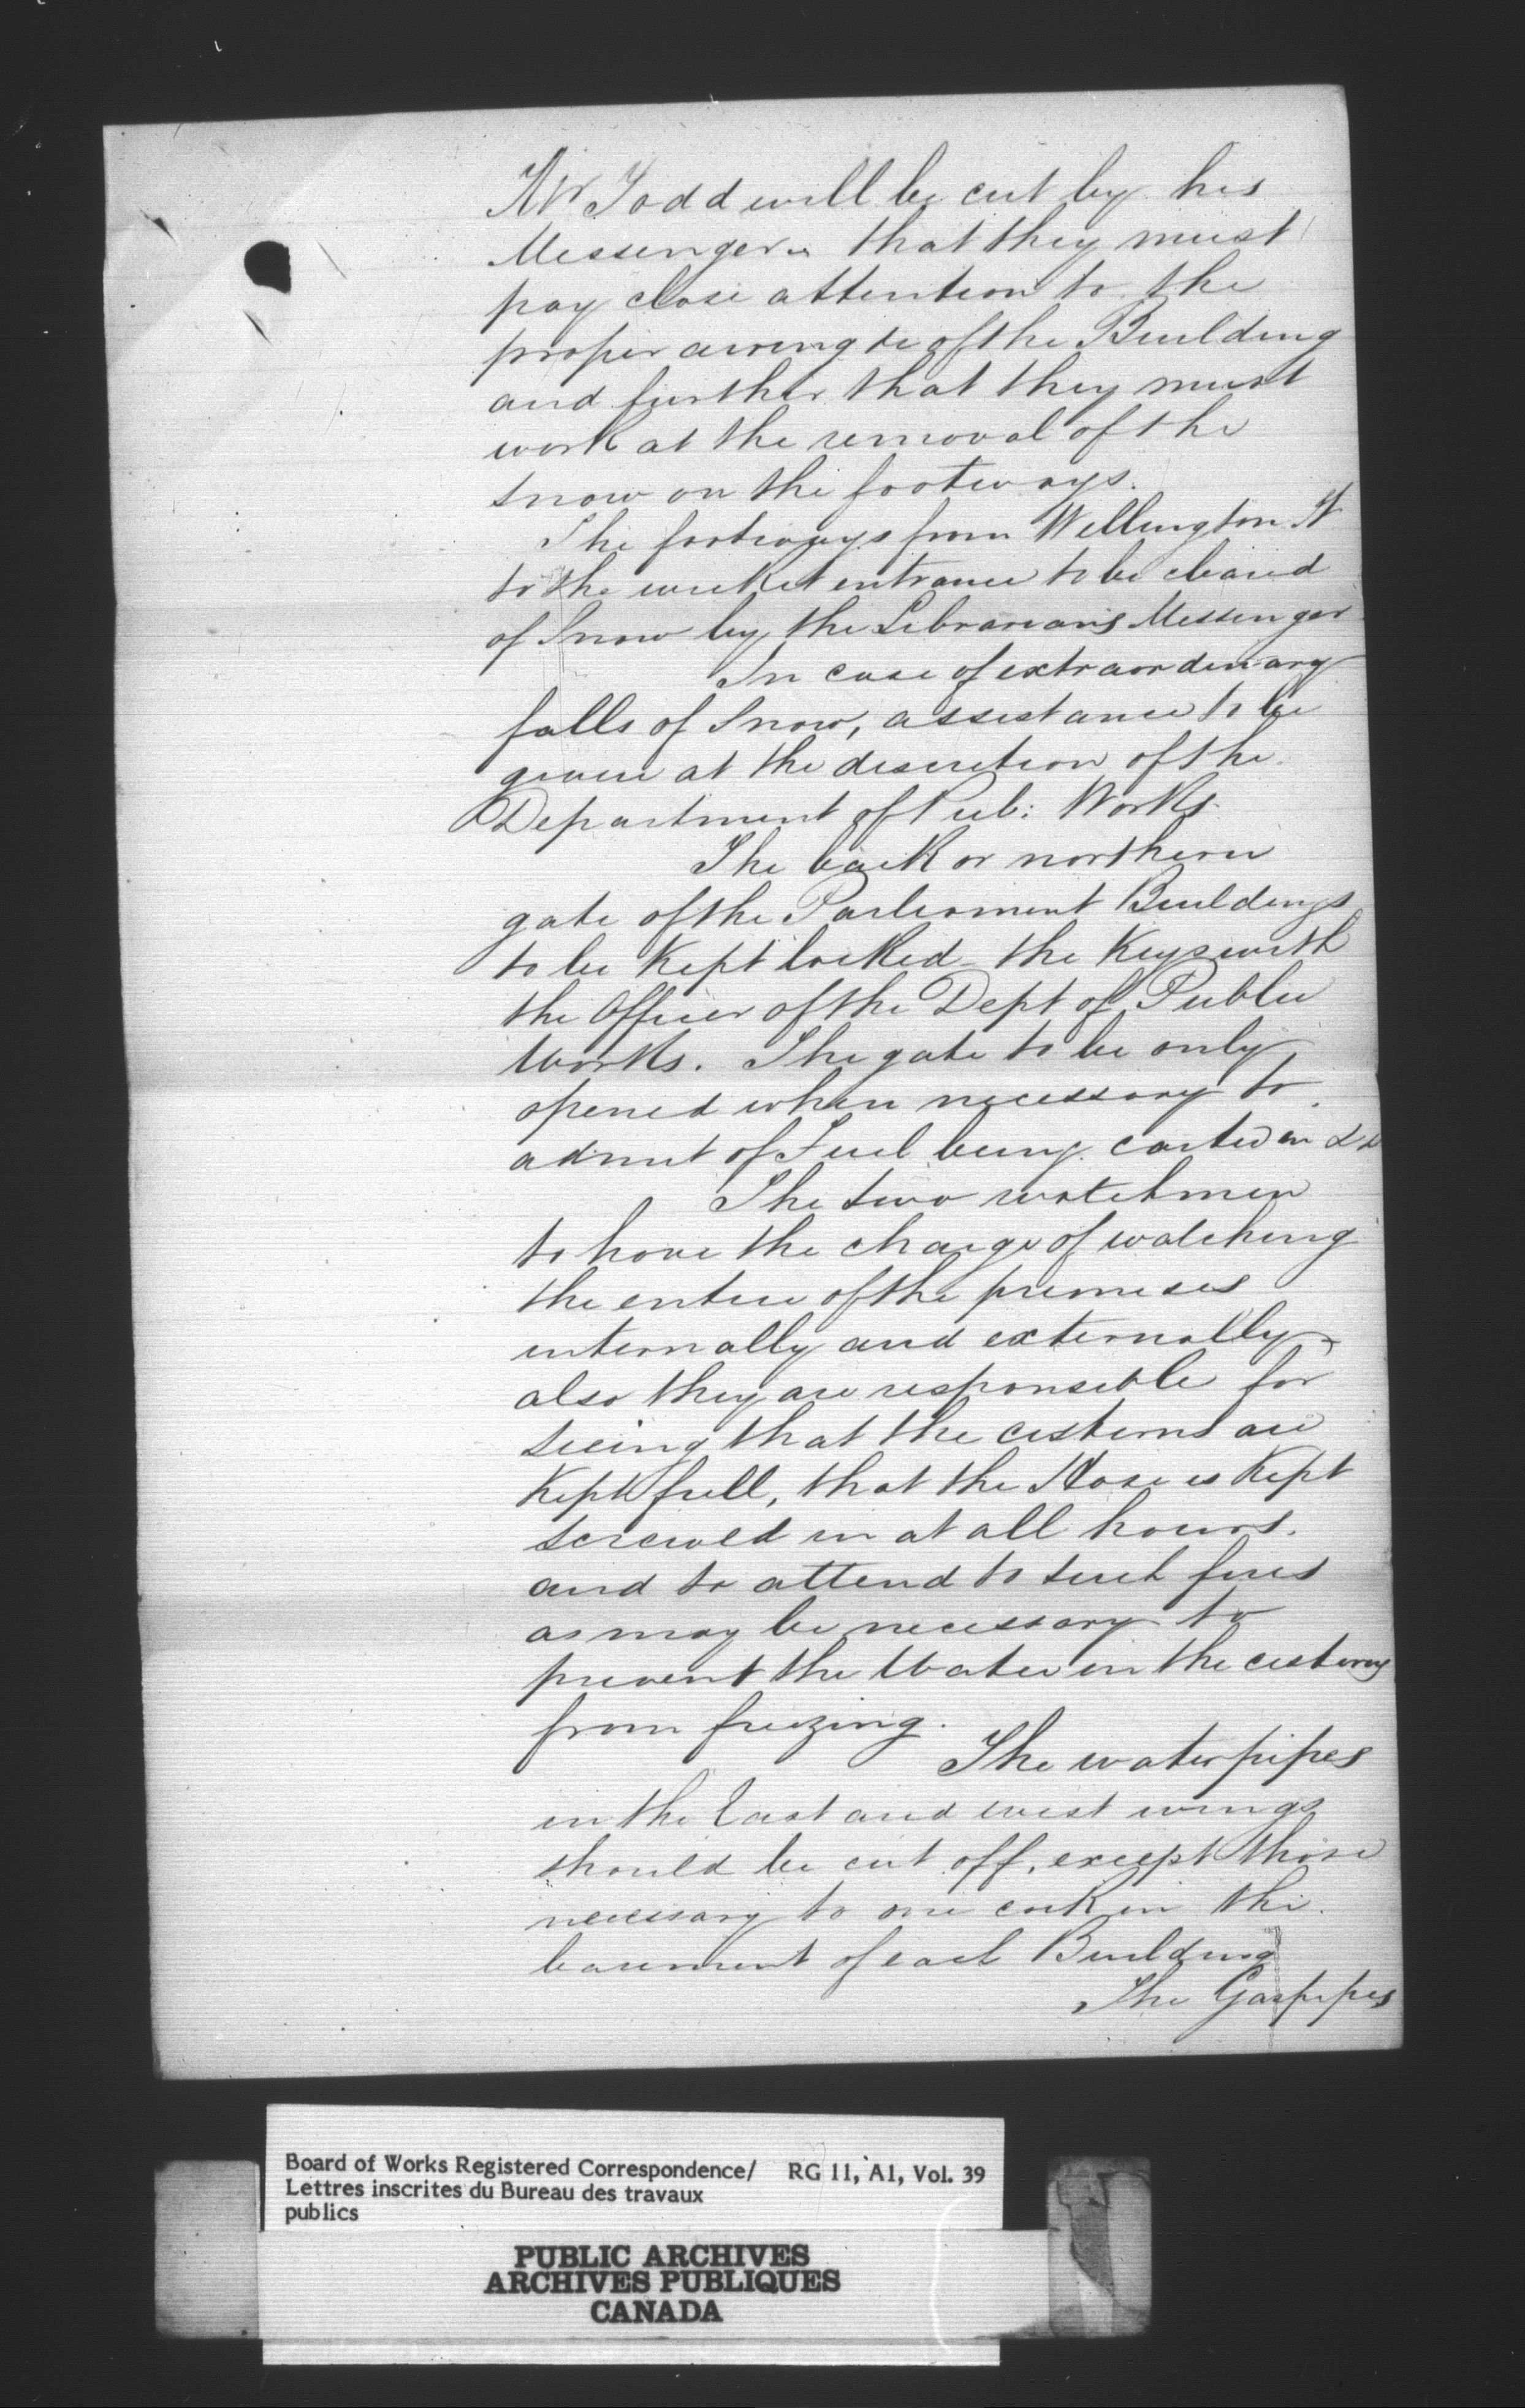 Mr Todd will be cut by his
Messengers that they must
pay close attention to the
proper airing &c of the Building
and further that they must
work at the removal of the
snow on the footways.
The footways from Wellington St
to the wicket entrance to be cleared
of Snow by the Librarians Messenger
In case of extraordinary
falls of Snow, assistance to be
given at the discretion of the
Department of Pub: Works.
The back or northern
gate of the Parliament Buildings
to be Kept locked - the Keys with
the Officer of the Dept of Public
Works. The gate to be only
opened when necessary to
admit of Fuel being carted in &c
The two watchmen
to have the charge of watching
the entire of the premises
internally and externally
also they are responsible for
seeing that the cisterns are
Kept full, that the Hose is Kept
screwed in at all hours.
and to attend to such fires
as may be necessary to
prevent the Water in the cisterns
from freezing.
The waterpipes
in the East and west wings
should be cut off, except those
necessary to one cock in the
basement of each Building
The Gaspipes
Board of Works Registered Correspondence/ RG 11, A1, Vol. 39
Lettres inscrites du Bureau des travaux
publics
PUBLIC ARCHIVES
ARCHIVES PUBLIQUES
CANADA